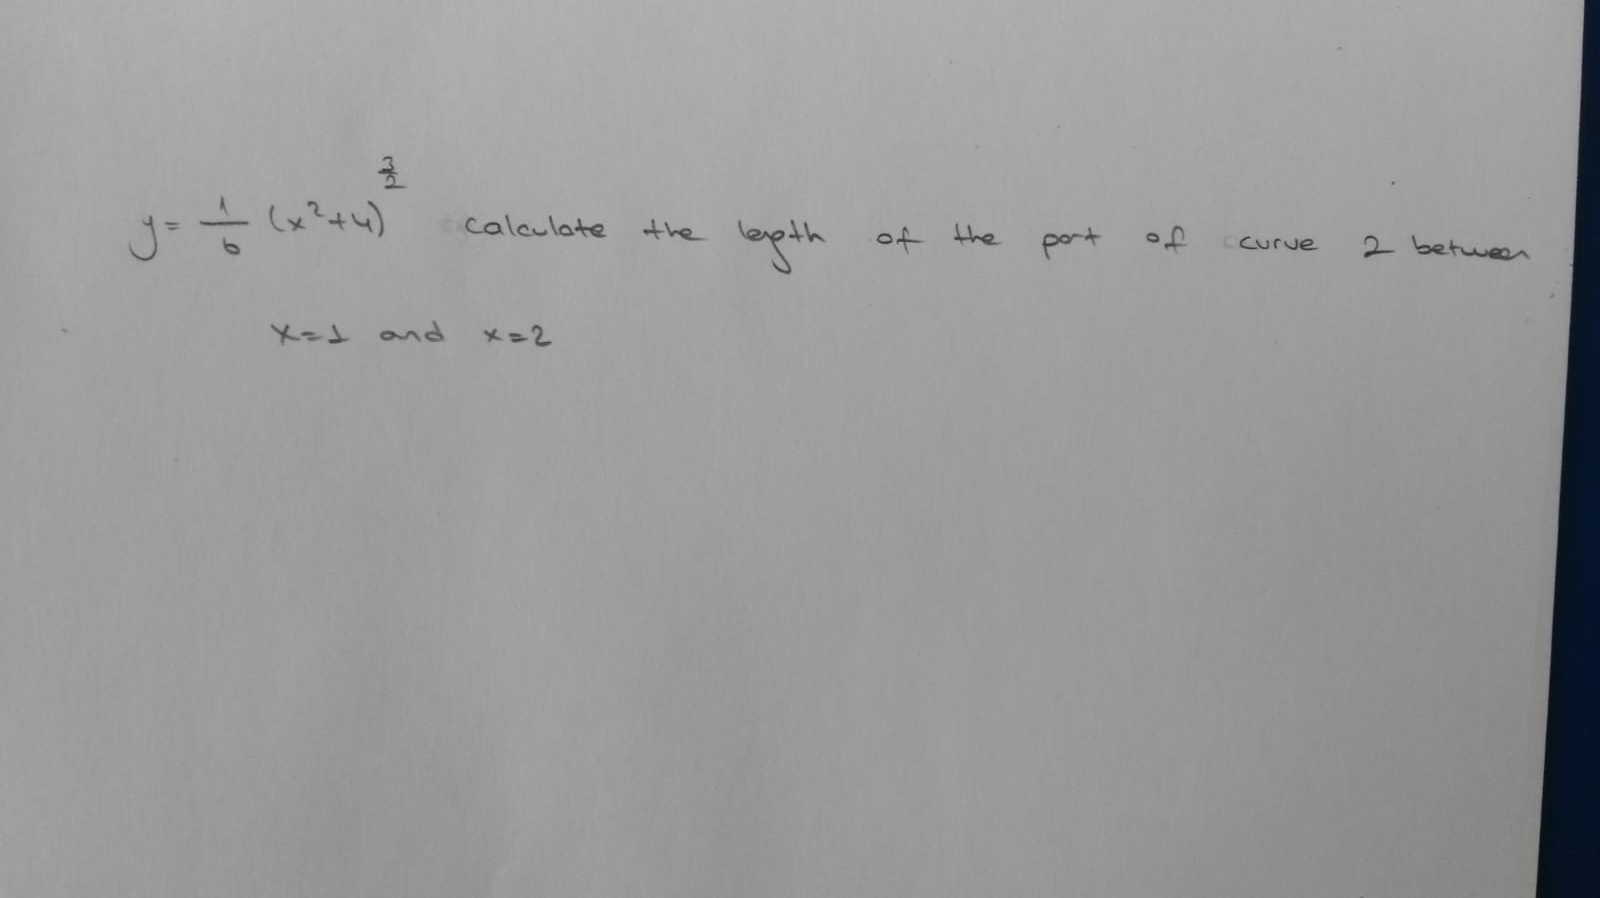 y = 1/6 (x²+4)^(3/2) calculate the length of the part of curve 2 between
x=1 and x=2